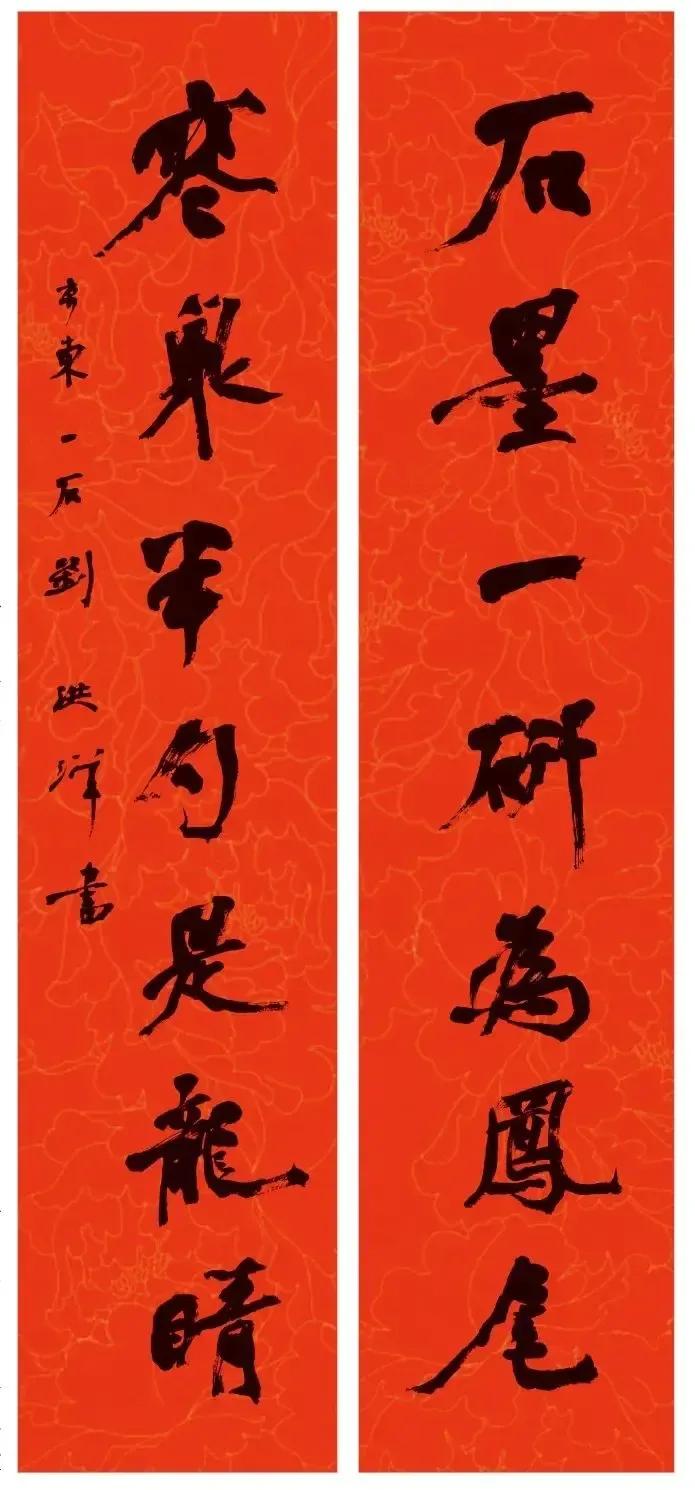 石墨一研為鳳尾
寒泉半勺是龍睛
東一石劉洪洋書